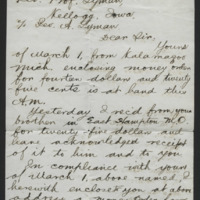 Rev. Prof. Lyman,
Kellogg, Iowa.
% Geo. A. Lyman
Dear Sir,
Yours
of March 1, from Kalamazoo
Mich enclosing money order
for fourteen dollars and twenty
five cents is at hand this
A.M.
Yesterday I rec'd from your
brother in East Hampton M.O.
for twenty-five dollars and
leave acknowledged receipt
of it to him and to you
In compliance with yours
of March 1, above named I
herewith enclose to you at above
address a